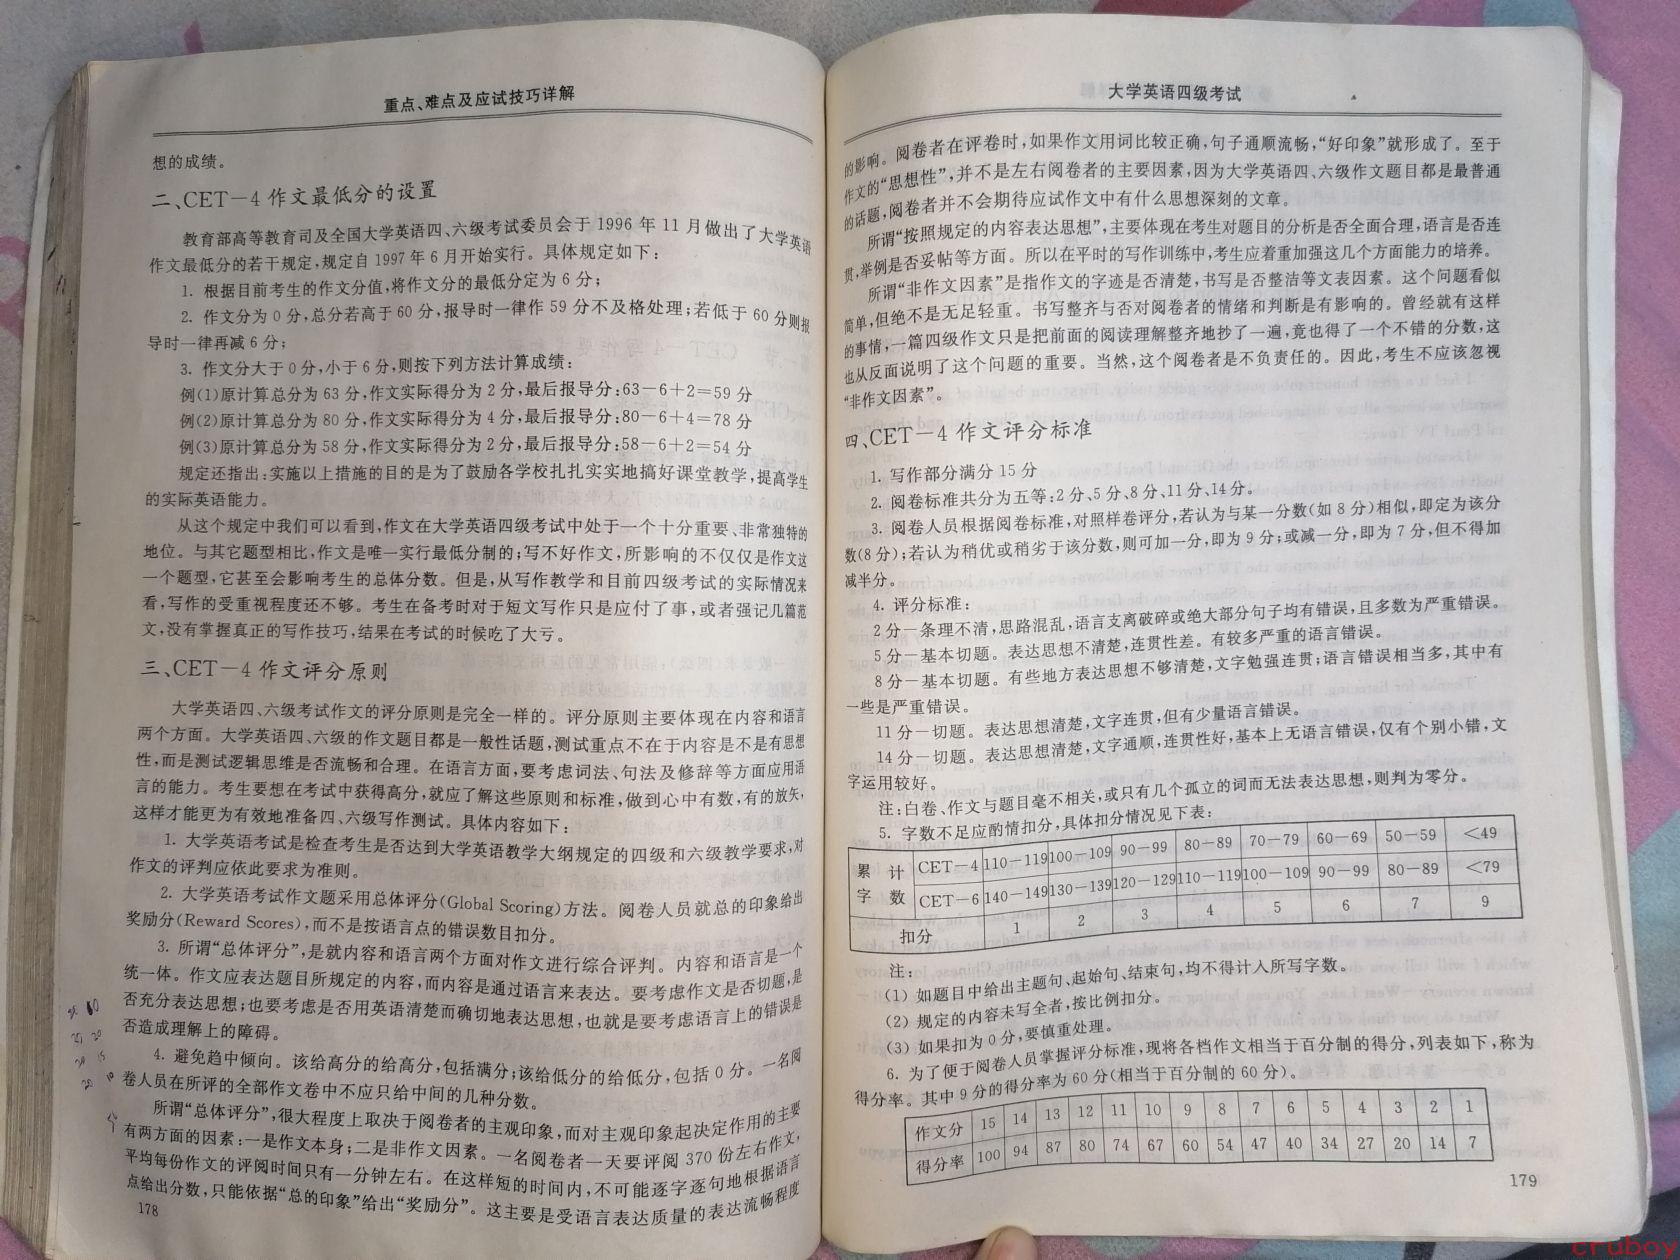 重点、难点及应试技巧详解
想的成绩。
二、CET－4 作文最低分的设置
教育部高等教育司及全国大学英语四、六级考试委员会于 1996 年 11 月做出了大学英语
作文最低分的若干规定,规定自 1997 年 6 月开始实行。具体规定如下:
1. 根据目前考生的作文分值,将作文分的最低分定为 6 分;
2. 作文分为 0 分,总分若高于 60 分,报导时一律作 59 分不及格处理;若低于 60 分则报
导时一律再减 6 分;
3. 作文分大于 0 分,小于 6 分,则按下列方法计算成绩:
例(1)原计算总分为 63 分,作文实际得分为 2 分,最后报导分:63－6＋2＝59 分
例(2)原计算总分为 80 分,作文实际得分为 4 分,最后报导分:80－6＋4＝78 分
例(3)原计算总分为 58 分,作文实际得分为 2 分,最后报导分:58－6＋2＝54 分
规定还指出:实施以上措施的目的是为了鼓励各学校扎扎实实地搞好课堂教学,提高学生
的实际英语能力。
从这个规定中我们可以看到,作文在大学英语四级考试中处于一个十分重要、非常独特的
地位。与其它题型相比,作文是唯一实行最低分制的;写不好作文,所影响的不仅仅是作文这
一个题型,它甚至会影响考生的总体分数。但是,从写作教学和目前四级考试的实际情况来
看,写作的受重视程度还不够。考生在备考时对于短文写作只是应付了事,或者强记几篇范
文,没有掌握真正的写作技巧,结果在考试的时候吃了大亏。
三、CET－4 作文评分原则
大学英语四、六级考试作文的评分原则是完全一样的。评分原则主要体现在内容和语言
两个方面。大学英语四、六级的作文题目都是一般性话题,测试重点不在于内容是不是有思想
性,而是测试逻辑思维是否流畅和合理。在语言方面,要考虑词法、句法及修辞等方面应用语
言的能力。考生要想在考试中获得高分,就应了解这些原则和标准,做到心中有数,有的放矢,
这样才能更为有效地准备四、六级写作测试。具体内容如下:
1. 大学英语考试是检查考生是否达到大学英语教学大纲规定的四级和六级教学要求,对
作文的评判应依此要求为准则。
2. 大学英语考试作文题采用总体评分(Global Scoring)方法。阅卷人员就总的印象给出
奖励分(Reward Scores),而不是按语言点的错误数目扣分。
3. 所谓“总体评分”,是就内容和语言两个方面对作文进行综合评判。内容和语言是一个
统一体。作文应表达题目所规定的内容,而内容是通过语言来表达。要考虑作文是否切题,是
否充分表达思想;也要考虑是否用英语清楚而确切地表达思想,也就是要考虑语言上的错误是
否造成理解上的障碍。
4. 避免趋中倾向。该给高分的给高分,包括满分;该给低分的给低分,包括 0 分。一名阅
卷人员在所评的全部作文卷中不应只给中间的几种分数。
所谓“总体评分”,很大程度上取决于阅卷者的主观印象,而对主观印象起决定作用的主要
有两方面的因素:一是作文本身;二是非作文因素。一名阅卷者一天要评阅 370 份左右作文,
平均每份作文的评阅时间只有一分钟左右。在这样短的时间内,不可能逐字逐句地根据语言
点给出分数,只能依据“总的印象”给出“奖励分”。这主要是受语言表达质量的表达流畅程度
178
大学英语四级考试
的影响。阅卷者在评卷时,如果作文用词比较正确,句子通顺流畅,“好印象”就形成了。至于
作文的“思想性”,并不是左右阅卷者的主要因素,因为大学英语四、六级作文题目都是最普通
的话题,阅卷者并不会期待应试作文中有什么思想深刻的文章。
所谓“按照规定的内容表达思想”,主要体现在考生对题目的分析是否全面合理,语言是否连
贯,举例是否妥帖等方面。所以在平时的写作训练中,考生应着重加强这几个方面能力的培养。
所谓“非作文因素”是指作文的字迹是否清楚,书写是否整洁等文表因素。这个问题看似
简单,但绝不是无足轻重。书写整齐与否对阅卷者的情绪和判断是有影响的。曾经就有这样
的事情,一篇四级作文只是把前面的阅读理解整齐地抄了一遍,竟也得了一个不错的分数,这
也从反面说明了这个问题的重要。当然,这个阅卷者是不负责任的。因此,考生不应该忽视
“非作文因素”。
四、CET－4 作文评分标准
1. 写作部分满分 15 分
2. 阅卷标准共分为五等:2 分、5 分、8 分、11 分、14 分。
3. 阅卷人员根据阅卷标准,对照样卷评分,若认为与某一分数(如 8 分)相似,即定为该分
数(8 分);若认为稍优或稍劣于该分数,则可加一分,即为 9 分;或减一分,即为 7 分,但不得加
减半分。
4. 评分标准:
2 分－条理不清,思路混乱,语言支离破碎或绝大部分句子均有错误,且多数为严重错误。
5 分－基本切题。表达思想不清楚,连贯性差。有较多严重的语言错误。
8 分－基本切题。有些地方表达思想不够清楚,文字勉强连贯;语言错误相当多,其中有
一些是严重错误。
11 分－切题。表达思想清楚,文字连贯,但有少量语言错误。
14 分－切题。表达思想清楚,文字通顺,连贯性好,基本上无语言错误,仅有个别小错,文
字运用较好。
注:白卷、作文与题目毫不相关,或只有几个孤立的词而无法表达思想,则判为零分。
5. 字数不足应酌情扣分,具体扣分情况见下表:
累 计 CET－4 110－119 100－109 90－99 80－89 70－79 60－69 50－59 ＜49
字 数 CET－6 140－149 130－139 120－129 110－119 100－109 90－99 80－89 ＜79
扣分 1 2 3 4 5 6 7 9
注:
(1) 如题目中给出主题句、起始句、结束句,均不得计入所写字数。
(2) 规定的内容未写全者,按比例扣分。
(3) 如果扣为 0 分,要慎重处理。
6. 为了便于阅卷人员掌握评分标准,现将各档作文相当于百分制的得分,列表如下,称为
得分率。其中 9 分的得分率为 60 分(相当于百分制的 60 分)。
作文分 15 14 13 12 11 10 9 8 7 6 5 4 3 2 1
得分率 100 94 87 80 74 67 60 54 47 40 34 27 20 14 7
179
cruboy